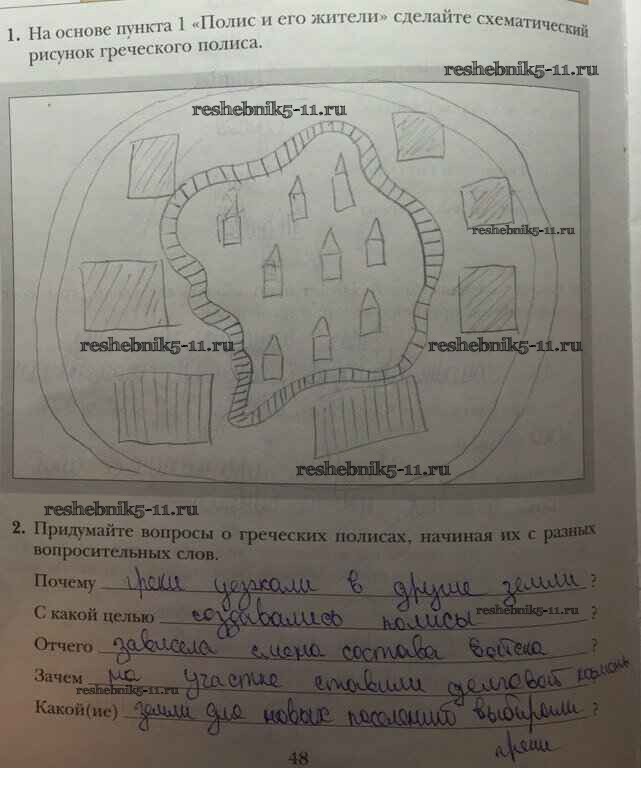 1. На основе пункта 1 «Полис и его жители» сделайте схематический
рисунок греческого полиса.
reshebnik5-11.ru
reshebnik5-11.ru
reshebnik5-11.ru
reshebnik5-11.ru
reshebnik5-11.ru
reshebnik5-11.ru
reshebnik5-11.ru
2. Придумайте вопросы о греческих полисах, начиная их с разных
вопросительных слов.
Почему греки уезжали в другие земли ?
С какой целью создавались полисы reshebnik5-11.ru ?
Отчего зависела смена состава войска ?
Зачем на участке ставили долговой камень
reshebnik5-11.ru
Какой(ие) земли для новых поселений выбирали ?
греки
48